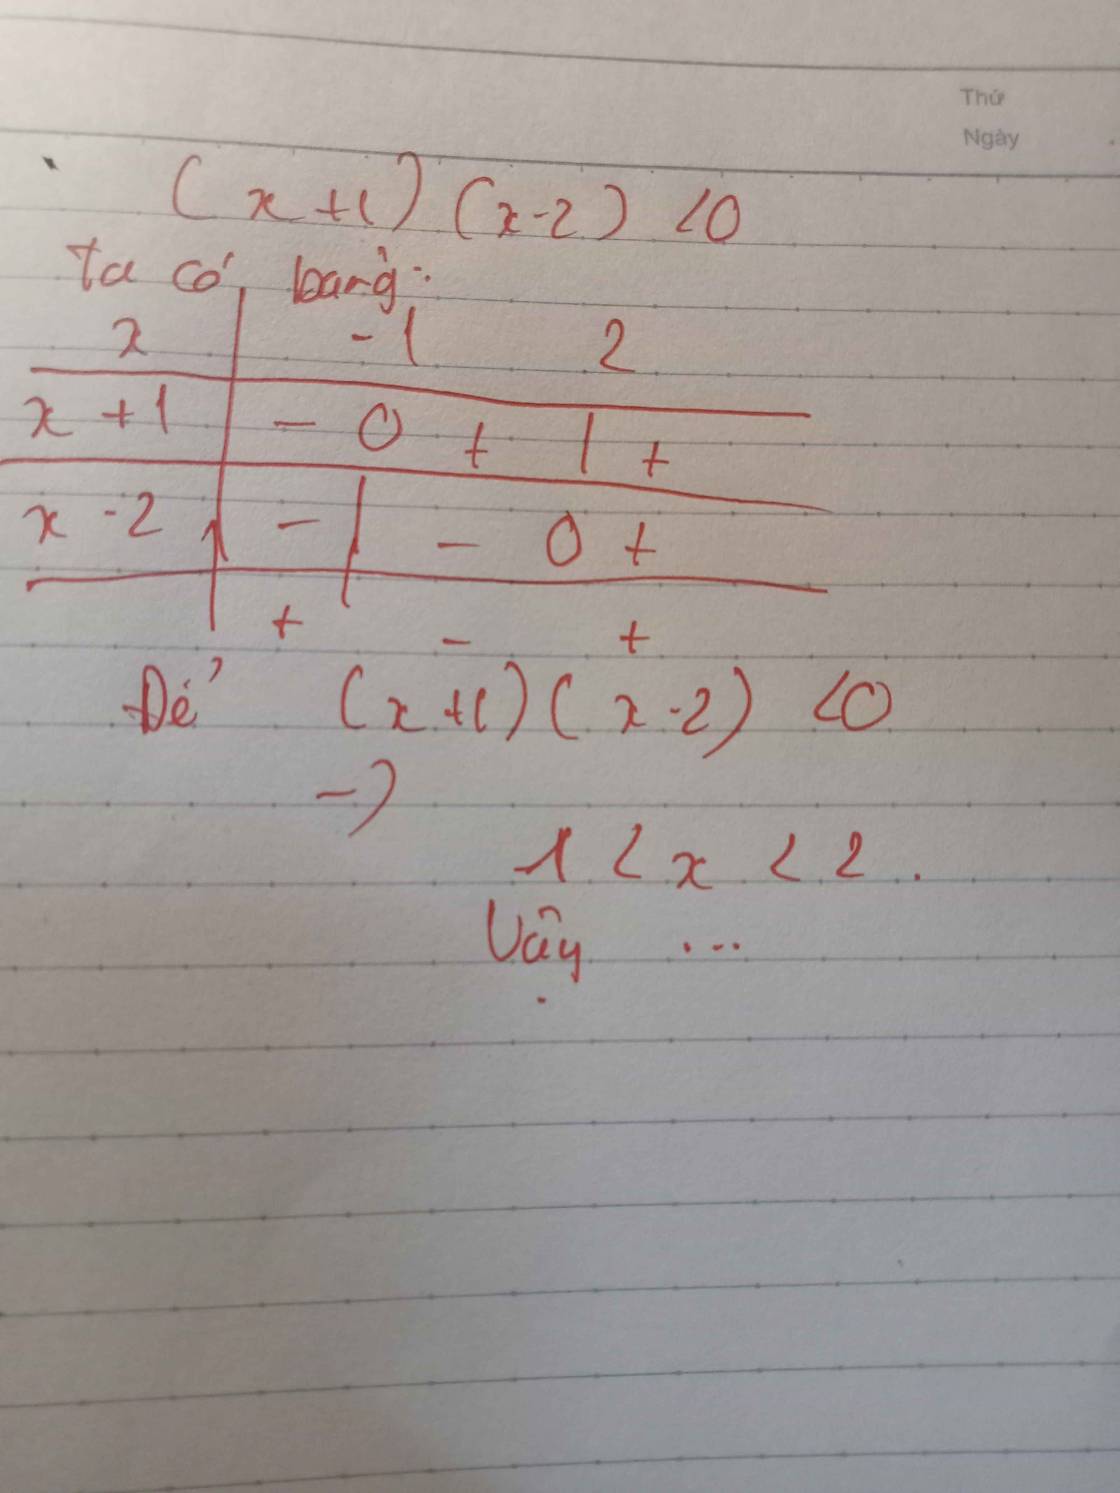 Thứ
Ngày
(x+1) (x-2) <0
Ta có bảng:
x -1 2
x +1 - 0 + | +
x -2 - | - 0 +
+ - +
Để (x+1) (x-2) <0
->
-1 < x < 2.
Vậy ...